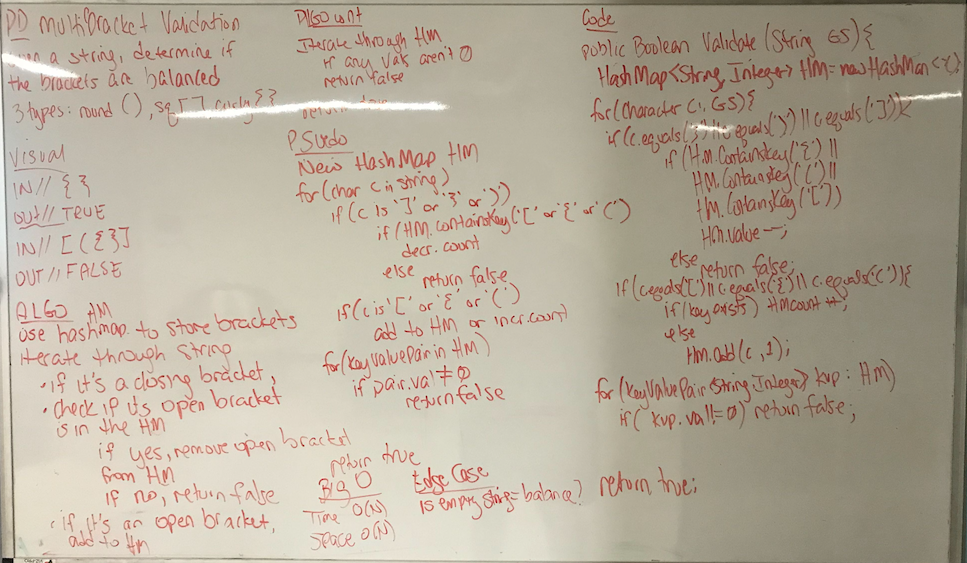 PD Multibracket Validation
a string, determine if
the brackets are balanced
3 types: round (), sq [], curly {}
Visual
IN// { }
OUT// TRUE
IN// [({}]
OUT// FALSE
ALGO HM
use hashmap to store brackets
iterate through string
• if it's a closing bracket,
• check if its open bracket
is in the HM
if yes, remove open bracket
from HM
if no, return false
• if it's an open bracket,
add to HM
ALGO cont
Iterate through HM
if any vals aren't 0
return false
PSUdo
New HashMap HM
for(char c in string)
if(c is ']' or '}' or ')')
if(HM.containsKey('[' or '{' or '(')
decr. count
else
return false
if(c is '[' or '{' or '(')
add to HM or incr.count
for(KeyValuePair in HM)
if pair.val ≠ 0
return false
return true
Big O
Time O(N)
Space O(N)
Edge Case
is empty string = balance?
Code
public Boolean Validate (String GS) {
HashMap<String, Integer> HM = new HashMap<>()
for(Character c: GS){
if(c.equals('}') || c.equals(')') || c.equals(']')){
if(HM.ContainsKey('{') ||
HM.ContainsKey('(') ||
HM.ContainsKey('['])
HM.value --;
else
return false;
if(c.equals('[') || c.equals('{') || c.equals('(')){
if(key exists) HMcount ++;
else
HM.add(c, 1);
for(KeyValuePair<String, Integer> kvp : HM)
if(kvp.val != 0) return false;
return true;